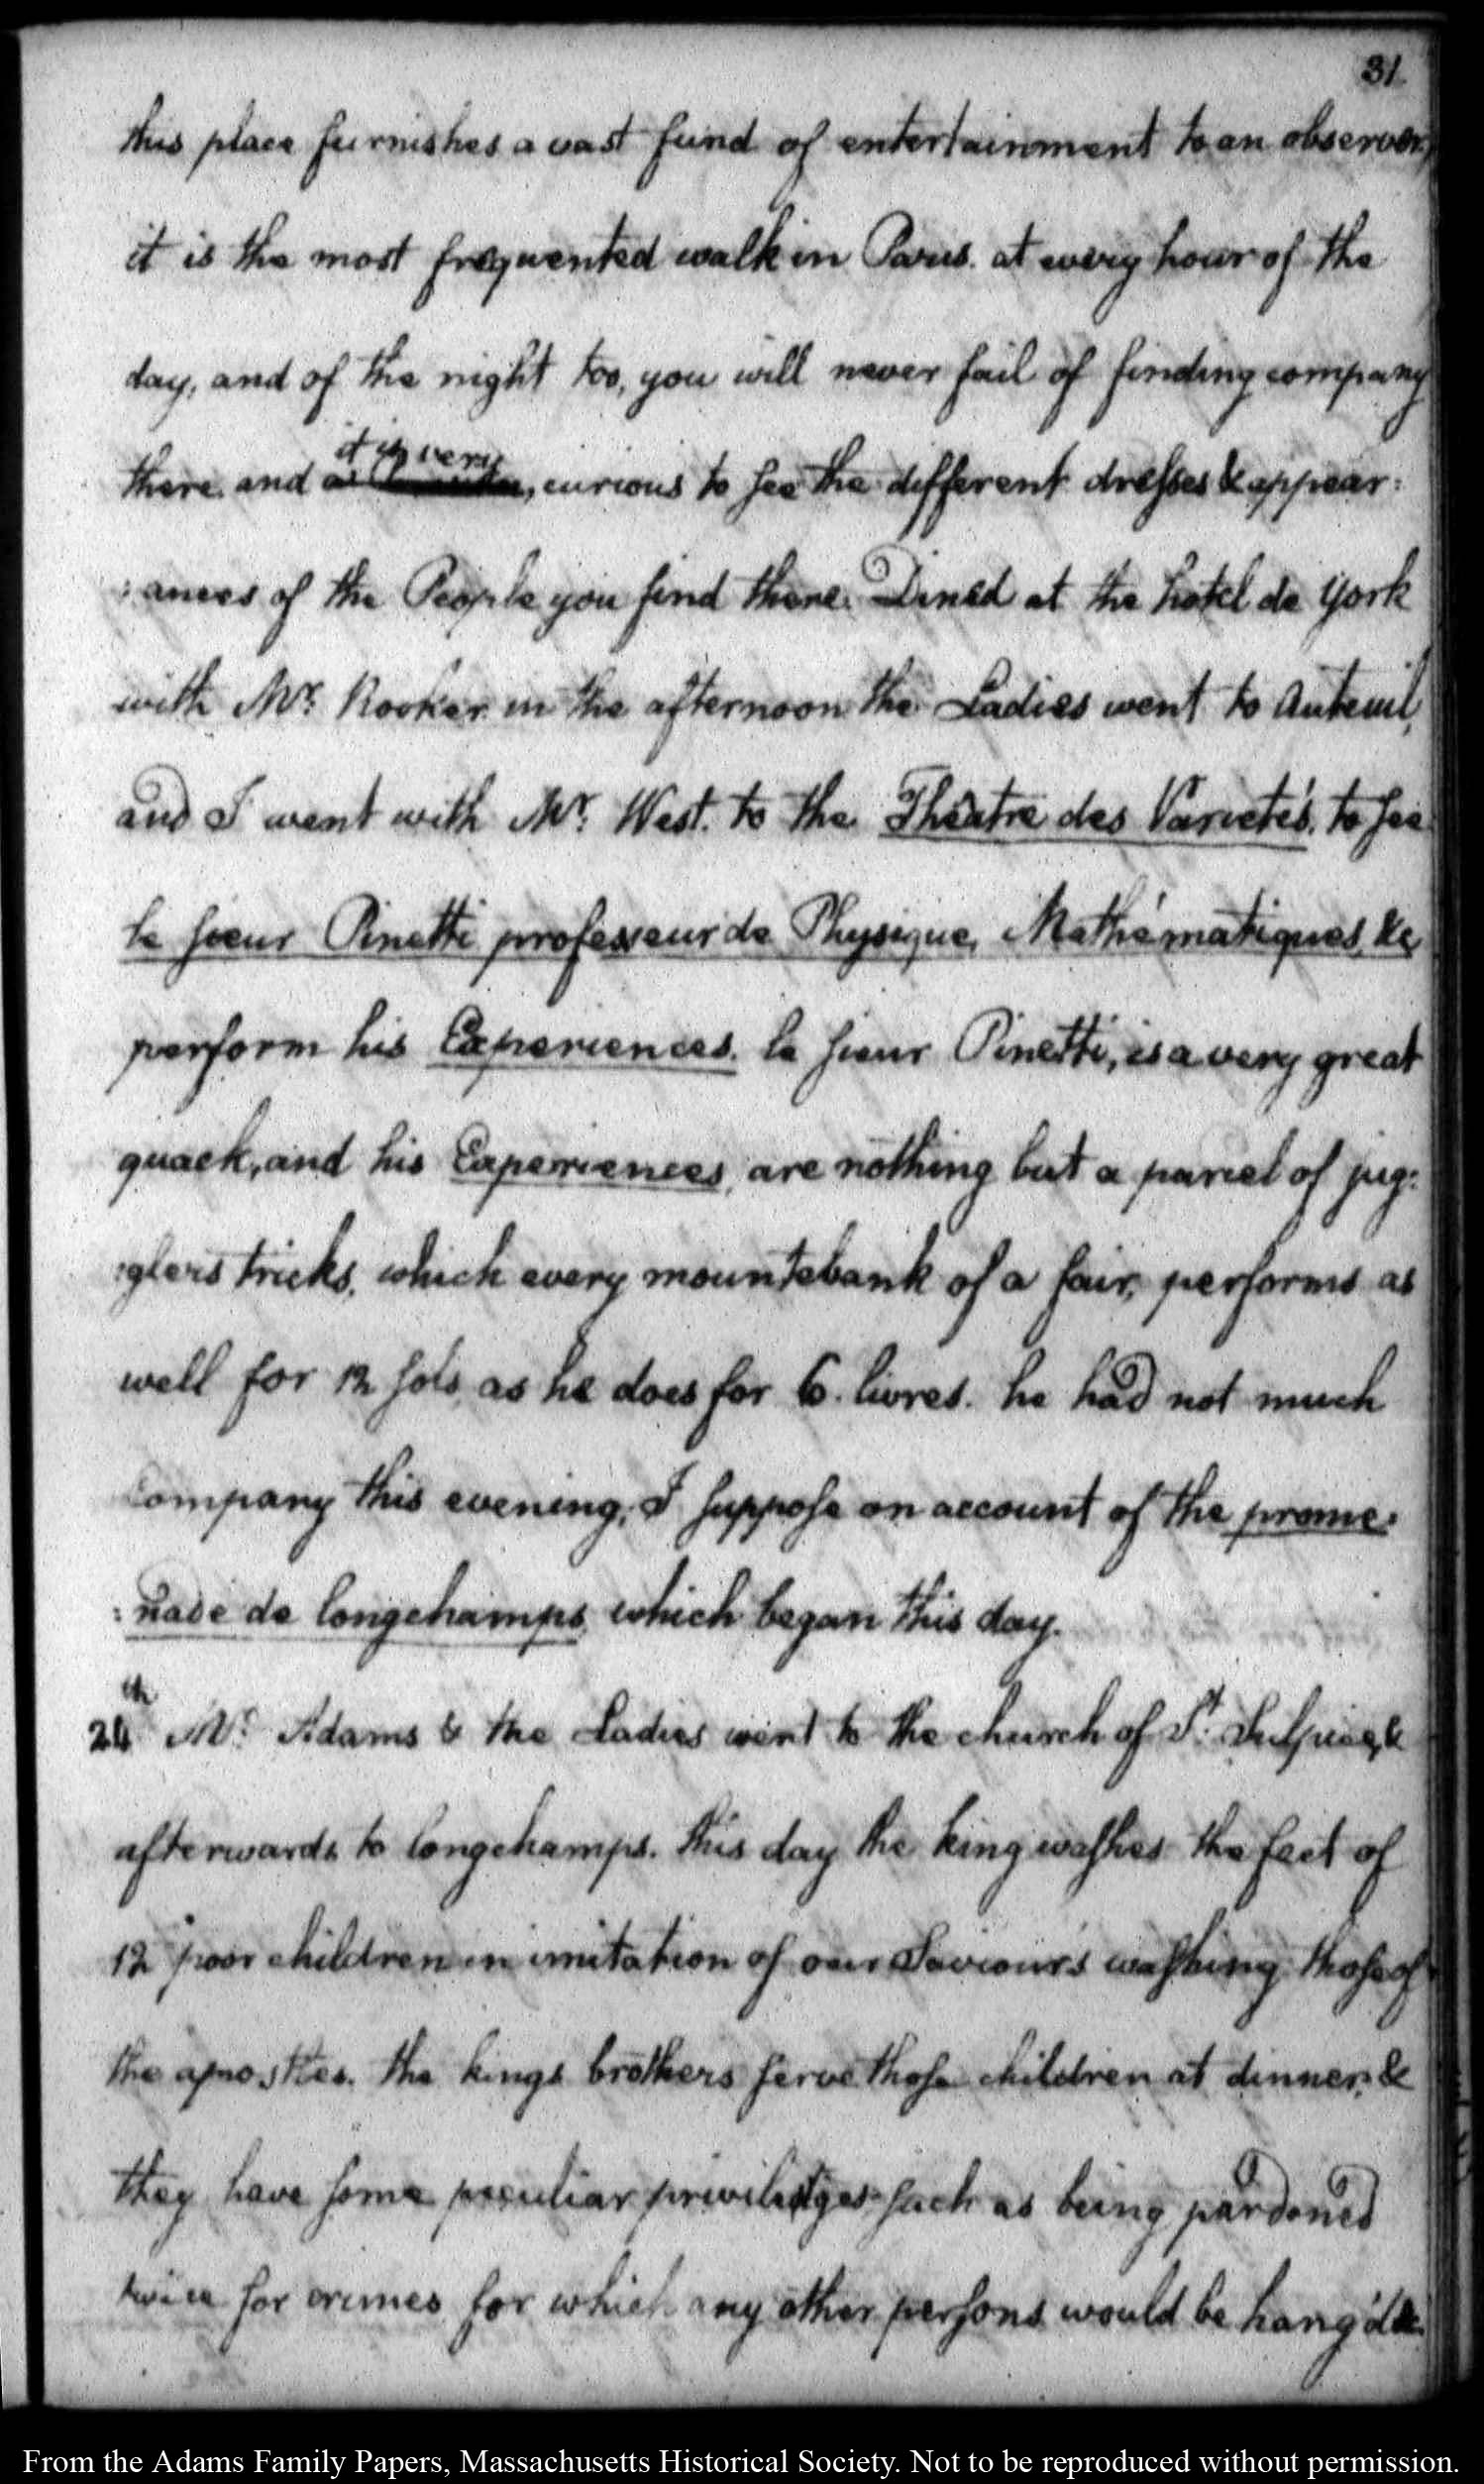 31
this place furnishes a vast fund of entertainment to an observer,
it is the most frequented walk in Paris. at every hour of the
day, and of the night too, you will never fail of finding company
it is very
there. and curious to see the different dresses & appear:
:ances of the People you find there. Dined at the hotel de York
with Mr. Rooker. in the afternoon the Ladies went to Auteuil,
and I went with Mr. West. to the Théatre des Varietés, to see
le sieur Pinetti professeur de Physique, Mathématiques, &c
perform his Experiences. le sieur Pinetti, is a very great
quack, and his Experiences, are nothing but a parcel of jug:
:glers tricks, which every mountebank of a fair, performs as
well for 12 sols, as he does for 6. livres. he had not much
Company this evening, I suppose on account of the prome:
:nade de longchamps, which began this day.
24th Mr. Adams & the Ladies went to the church of St. Sulpice, &
afterwards to longchamps. this day the king washes the feet of
12 poor children in imitation of our Saviour's washing those of
the apostles. the kings brothers serve those children at dinner, &
they have some peculiar priviledges such as being pardoned
twice for crimes for which any other persons would be hang'd &c
From the Adams Family Papers, Massachusetts Historical Society. Not to be reproduced without permission.